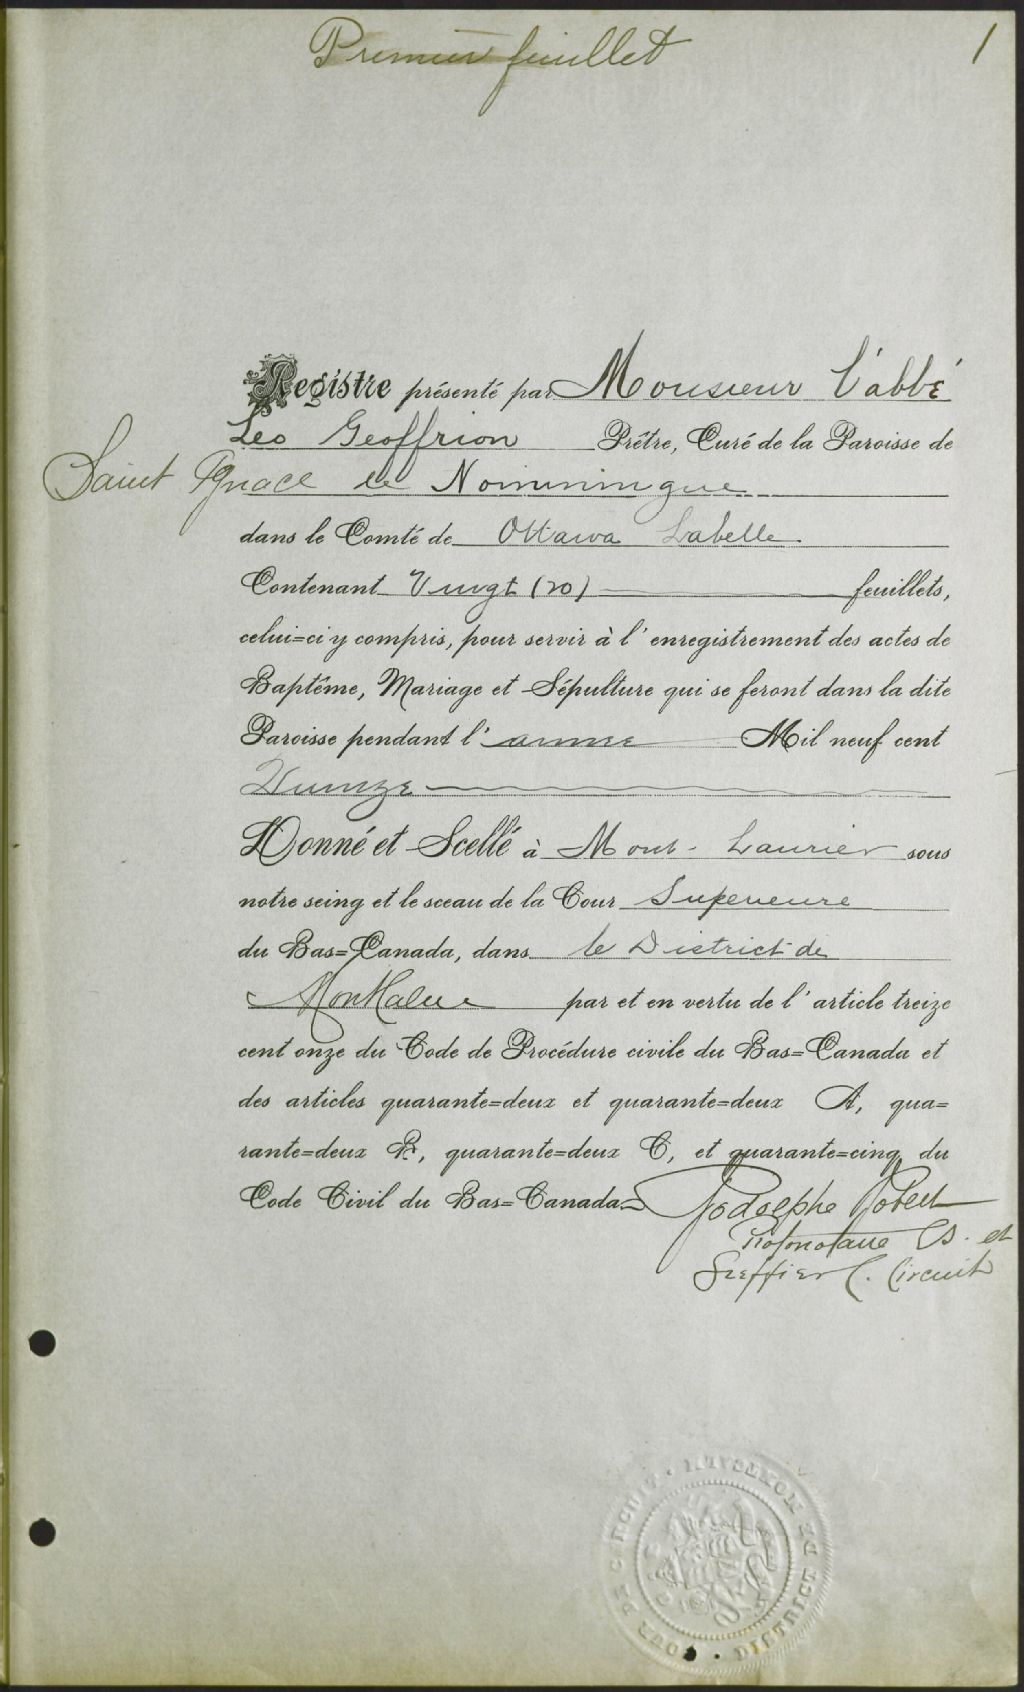 Premier feuillet
1
Registre présenté par Monsieur l'abbé
Leo Geoffrion Prêtre, Curé de la Paroisse de
Saint Ignace de Nominingue
dans le Comté de Ottawa Labelle
Contenant Vingt (20) feuillets,
celui=ci y compris, pour servir à l'enregistrement des actes de
Baptême, Mariage et Sépulture qui se feront dans la dite
Paroisse pendant l'année Mil neuf cent
Quinze
Donné et Scellé à Mont-Laurier sous
notre seing et le sceau de la Cour Superieure
du Bas=Canada, dans le District de
Montcalm par et en vertu de l'article treize
cent onze du Code de Procédure civile du Bas=Canada et
des articles quarante=deux et quarante=deux A, qua=
rante=deux B, quarante=deux C, et quarante=cinq du
Code Civil du Bas=Canada
Rodolphe Robert
Protonotaire CS. et
Greffier C. Circuit
COUR DE CIRCUIT · DISTRICT DE MONTCALM ·